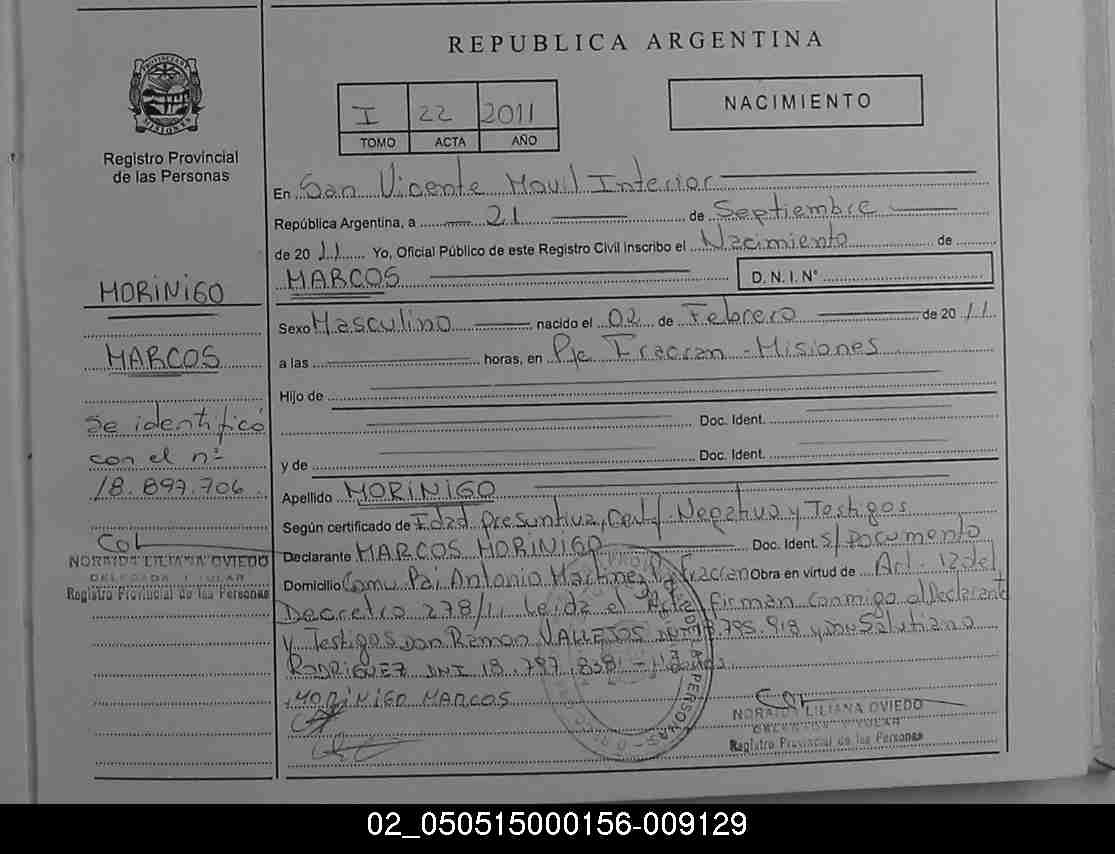 REPUBLICA ARGENTINA
PROVINCIA DE MISIONES
Registro Provincial
de las Personas
I 22 2011
TOMO ACTA AÑO
NACIMIENTO
MORINIGO
MARCOS
Se identificó
con el nº
18.897.706.
NORAIDA LILIANA OVIEDO
DELEGADA TITULAR
Registro Provincial de las Personas
En San Vicente Movil Interior
República Argentina, a 21 de Septiembre
de 2011 Yo, Oficial Público de este Registro Civil inscribo el Nacimiento de
MARCOS D.N.I.Nº
Sexo Masculino nacido el 02 de Febrero de 2011
a las horas, en Pje Fracran - Misiones
Hijo de
Doc. Ident.
y de Doc. Ident.
Apellido MORINIGO
Según certificado de Edad Presuntiva, Certf. Negativa y Testigos
Declarante MARCOS MORINIGO Doc. Ident. s/Documento
Domicilio Comu. Pai Antonio Martinez Pje Fracran Obra en virtud de Art. 12 del
Decreto 278/11 Leida el Acta firman conmigo el Declarante
y Testigos Don Ramon VALLEJOS DNI 18.795.918 y Don Salutiano
RODRIGUEZ DNI 18.797.838 -
MORINIGO MARCOS
NORAIDA LILIANA OVIEDO
DELEGADA TITULAR
Registro Provincial de las Personas
02_050515000156-009129